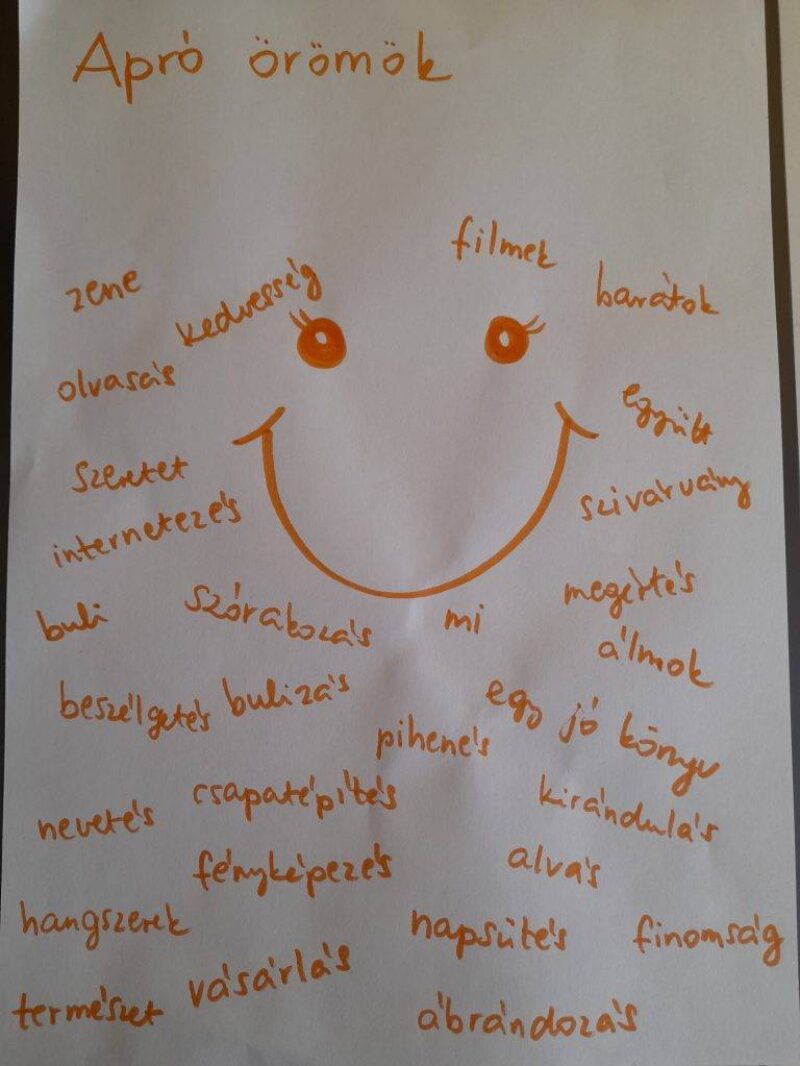 Apró örömök
filmek
zene
kedvesség
barátok
olvasás
együtt
szeretet
szivárvány
internetezés
megértés
buli
szórakozás
mi
álmok
beszélgetés
bulizás
egy jó könyv
pihenés
csapatépítés
kirándulás
nevetés
fényképezés
alvás
hangszerek
napsütés
finomság
vásárlás
természet
ábrándozás